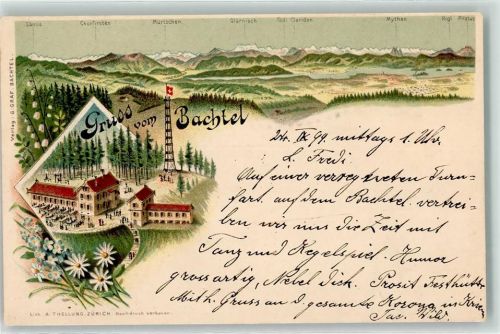 Säntis Churfirsten Mürtschen Glärnisch Tödi Clariden Mythen Rigi Pilatus
Verlag G. GRAF BACHTEL.
Gruss vom Bachtel
24. IX 99. mittags 1 Uhr.
L. Fredi
Auf einer verregneten Turn-
fart. auf dem Bachtel. vertrei-
ben wir uns die Zeit mit
Tanz und Kegelspiel. Humor
grossartig, Nebel dick. Prosit
Mit h. Gruss an d. gesamte
Jac. Wild.
Lith. A. THELLUNG, ZÜRICH Nachdruck verboten.